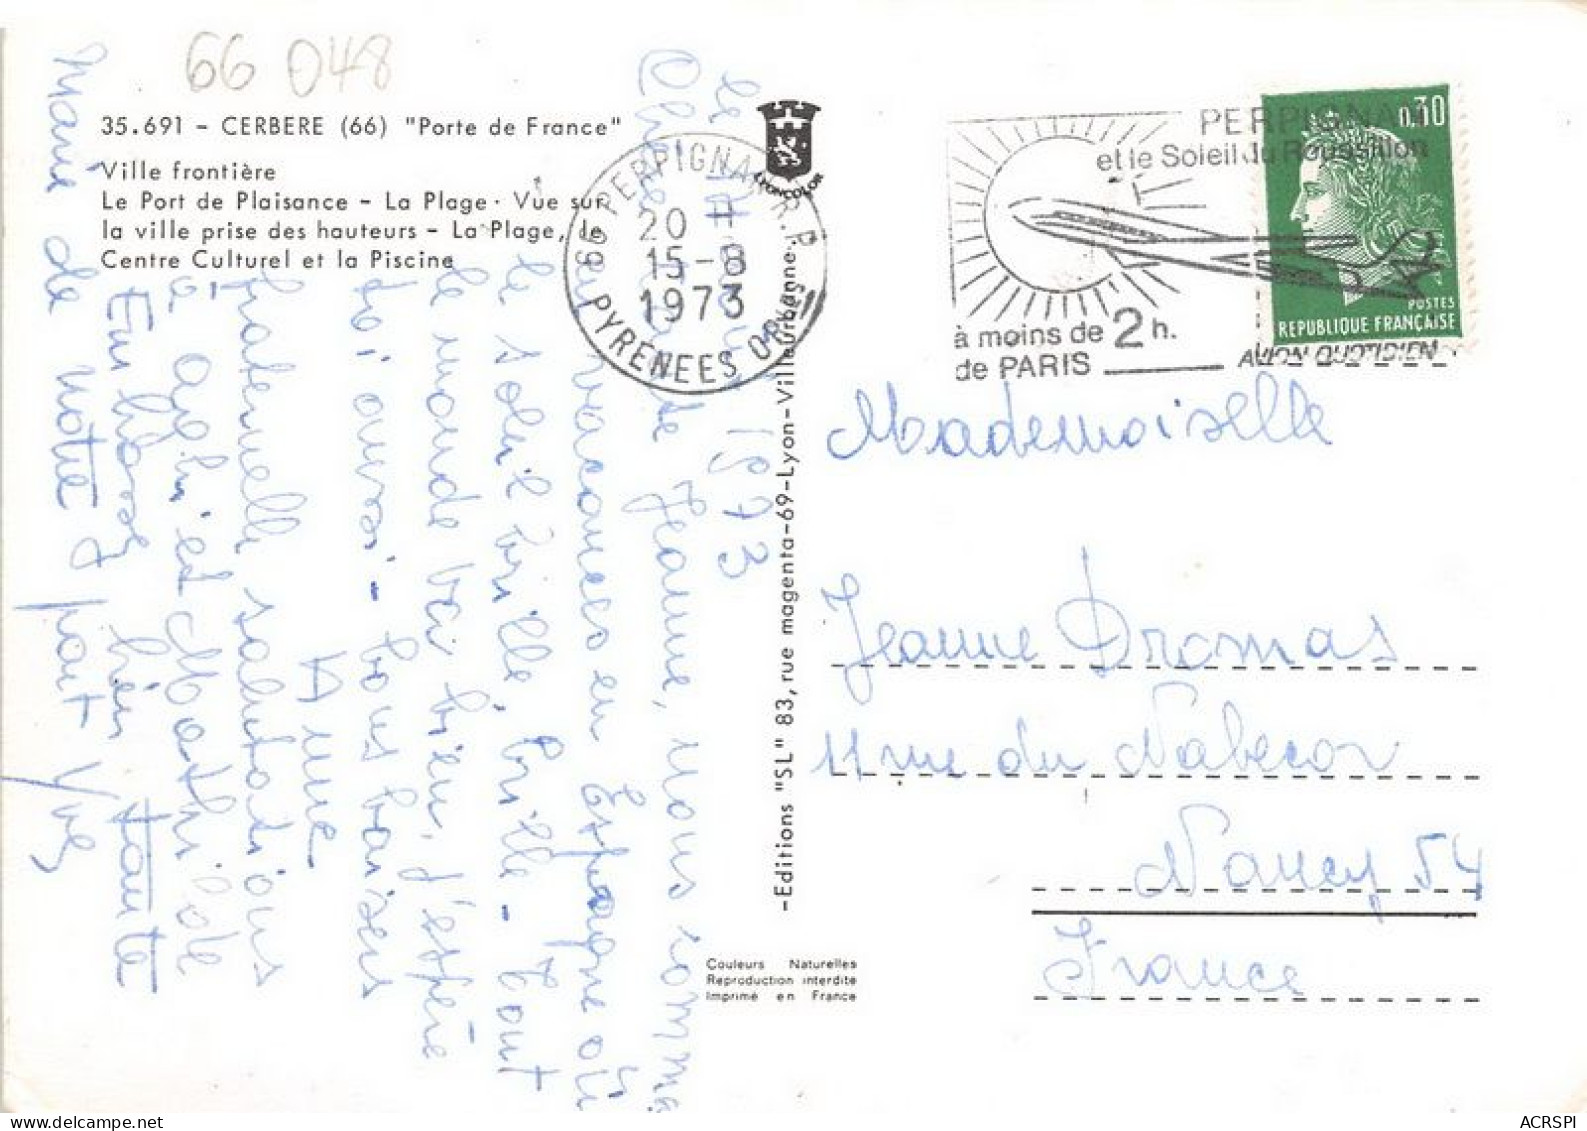 66 048
35.691 - CERBERE (66) "Porte de France"
Ville frontière
Le Port de Plaisance - La Plage - Vue sur
la ville prise des hauteurs - La Plage, le
Centre Culturel et la Piscine
LYONCOLOR
66 PERPIGNAN R.P.
20 H
15-8
1973
PYRENEES ORLES
PERPIGNAN
et le Soleil du Roussillon
à moins de 2 h.
de PARIS
AVION QUOTIDIEN
0,30
POSTES
REPUBLIQUE FRANÇAISE
le 14 1973
Chère Jeanne, nous somme
en vacances en Espagne où
le soleil brille, brille - Tout
le monde va bien, j'espère
toi aussi - Tous baisers
fraternelle salutations
Anne
à Mathilde
Embrasse bien tante
Marie de notre part Yves
-Editions "SL" 83, rue magenta-69-Lyon-Villeurbanne-
Couleurs Naturelles
Reproduction interdite
Imprimé en France
Mademoiselle
Jeanne Dromas
11 rue du Nabecor
Nancy 54
France
ACRSPI